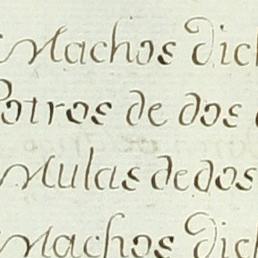 Machos Dich
Potros de dos
Mulas de dos
Machos Dich